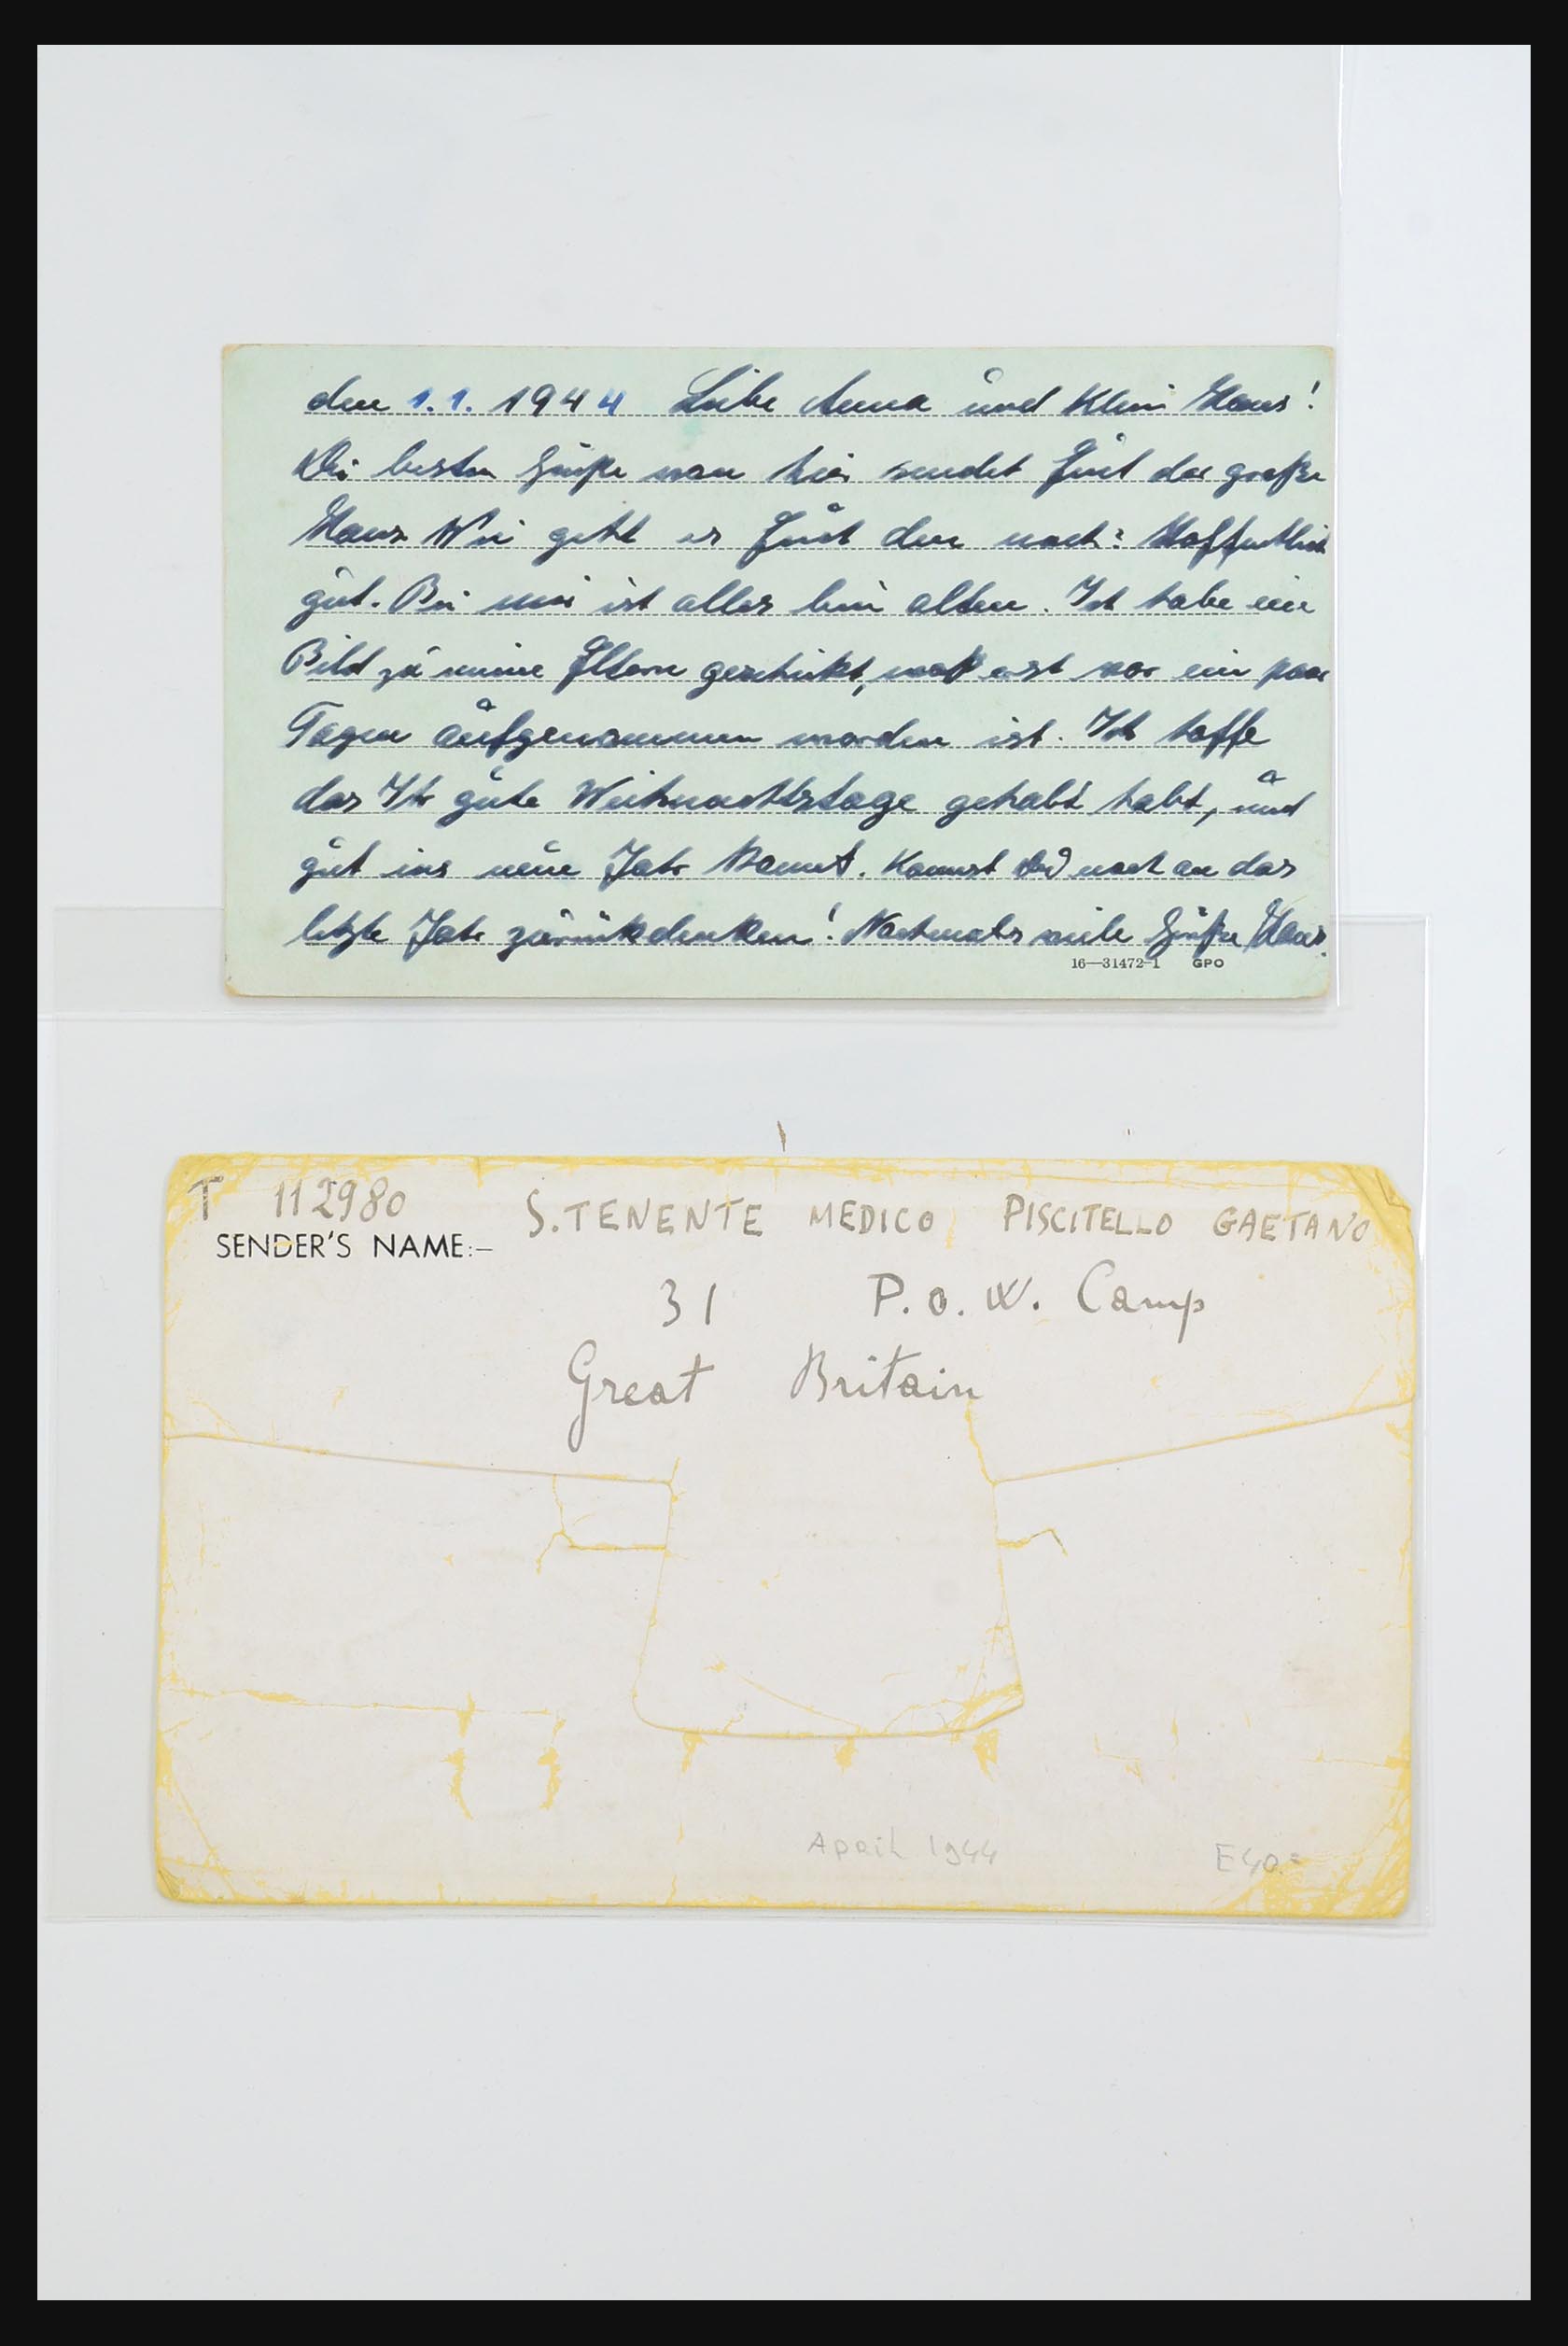 den 1.1.1944 Liebe Anna und Klein Hans!
Die besten Grüße von hier sendet Euch der große
Hans. Wie geht es Euch den noch? Hoffentlich
gut. Bei mir ist alles beim alten. Ich habe ein
Bild zu meine Eltern geschickt, was erst vor ein paar
Tagen aufgenommen worden ist. Ich hoffe
das Ihr gute Weihnachtstage gehabt habt, und
gut ins neue Jahr kamt. Kannst Du noch an das
letzte Jahr zurückdenken! Nochmals viele Grüße Hans.
16—31472-1 GPO
T 112980 S.TENENTE MEDICO PISCITELLO GAETANO
SENDER'S NAME:—
31 P.O.W. Camp
Great Britain
April 1944 E40.=